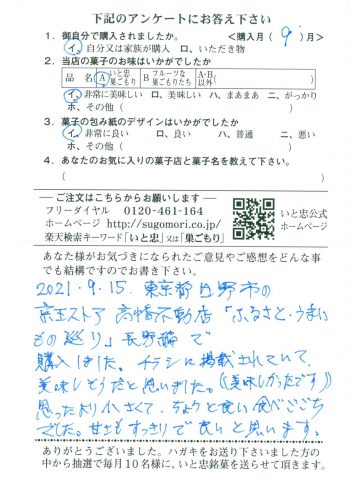 下記のアンケートにお答え下さい
1. 御自分で購入されましたか。 <購入月( 9 )月>
イ、自分又は家族が購入 ロ、いただき物
2. 当店の菓子のお味はいかがでしたか
品 名 A いと忠巣ごもり B フルーツな巣ごもりたち A・B以外( )
イ、非常に美味しい ロ、美味しい ハ、まあまあ ニ、がっかり
ホ、その他( )
3. 菓子の包み紙のデザインはいかがでしたか
イ、非常に良い ロ、良い ハ、普通 ニ、悪い
ホ、その他( )
4. あなたのお気に入りの菓子店と菓子名を教えて下さい。
( )
― ご注文はこちらからお願いします ―
フリーダイヤル 0120-461-164
ホームページ http://sugomori.co.jp/
楽天検索キーワード「いと忠」又は「巣ごもり」
いと忠公式
ホームページ
あなた様がお気づきになられたご意見やご感想をどんな事
でも結構ですのでお書き下さい。
2021.9.15. 東京都日野市の
京王ストア 高幡不動店「ふるさと・うまい
もの巡り」長野編 で
購入しました。チラシに掲載されていて、
美味しそうだと思いました。(美味しかったです!!)
思ったより小さくて、ちょうど良い食べごごち
でした。甘さもすっきりで良いと思います。
ありがとうございました。ハガキをお送り下さいました方の
中から抽選で毎月10名様に、いと忠銘菓を送らせて頂きます。